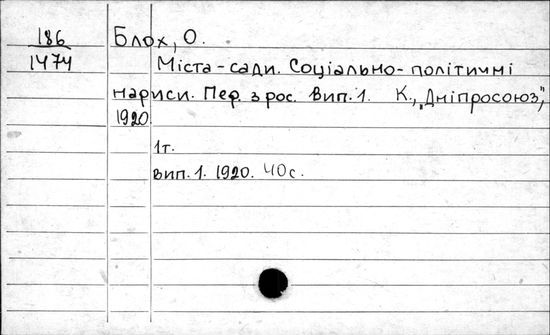 186
1474
Блох, О.
Міста-сади. Соціально-політичні
нариси. Пер. з рос. Вип. 1. К., „Дніпросоюз",
1920.
1т.
Вип. 1. 1920. 40 с.